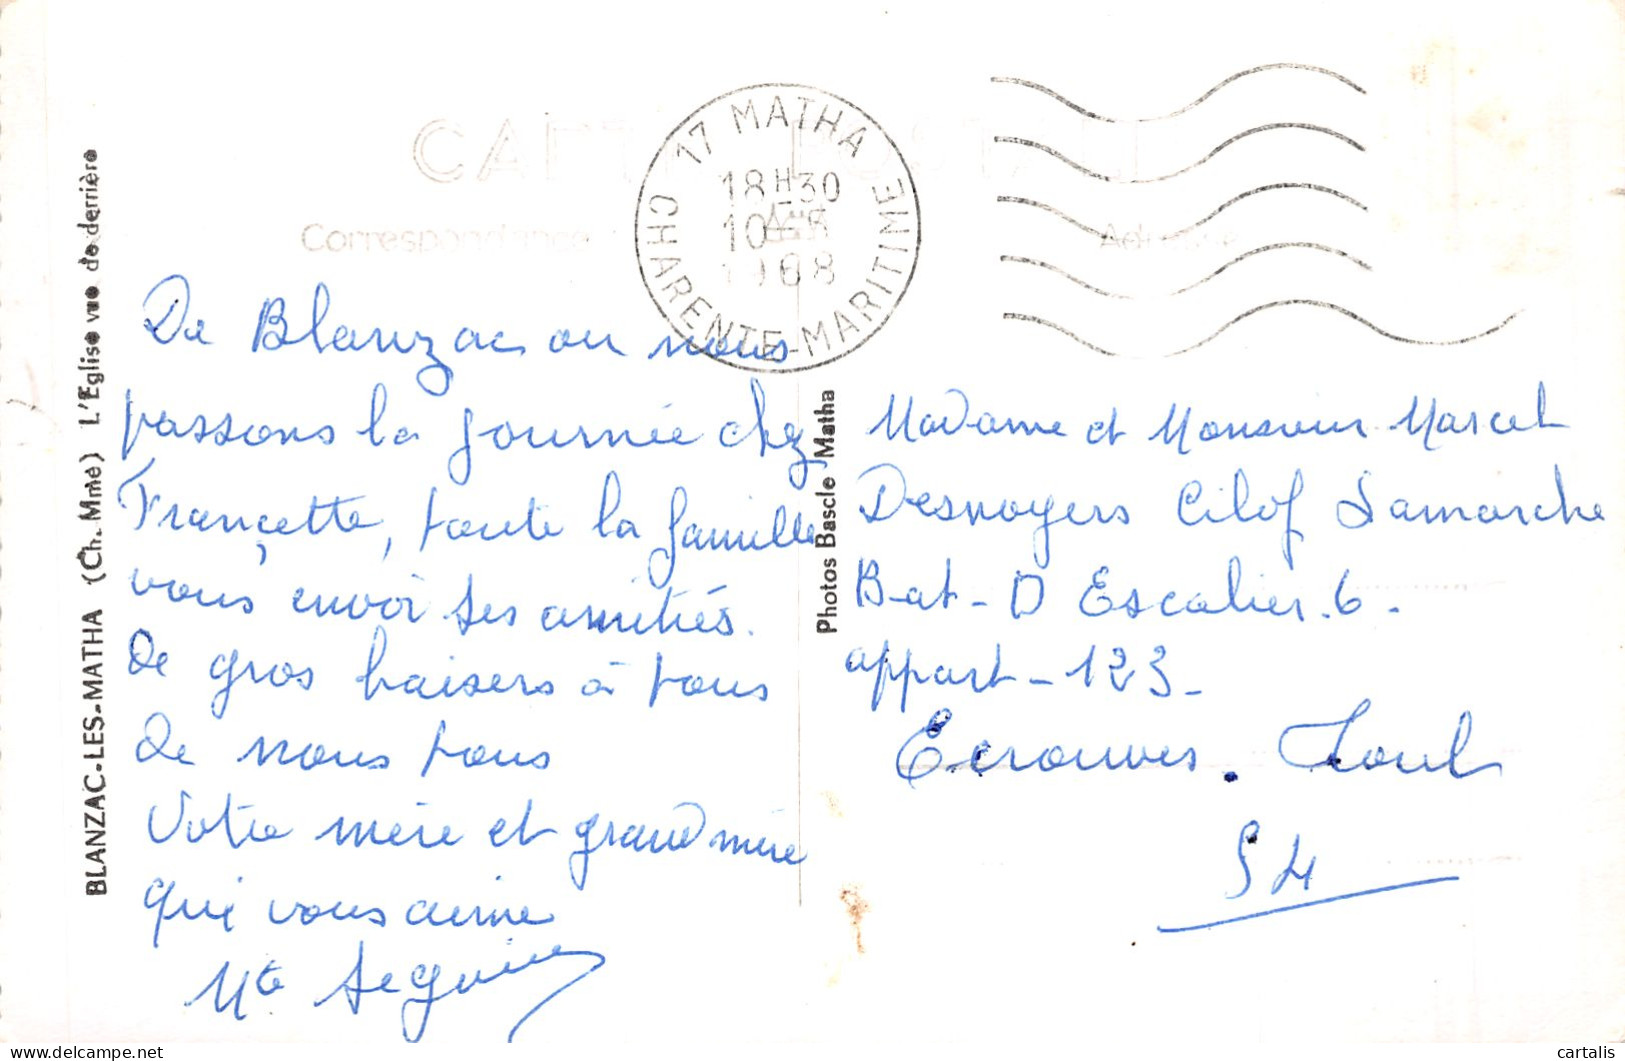 CARTE POSTALE
Correspondance
Adresse
17 MATHA
18H30
10
1968
CHARENTE-MARITIME
BLANZAC-LES-MATHA (Ch. Mme) L'Eglise vue de derrière
Photos Bascle Matha
De Blanzac ou nous
passons la journée chez
Françette, toute la famille
vous envoi ses amitiés.
De gros baisers à tous
de nous tous
Votre mère et grand mère
qui vous aime
Mte Seguin
Madame et Monsieur Marcel
Desnoyers Cilof Lamarche
Bat-D Escalier.6.
appart-123-
Ecrouves. Toul
54
cartalis